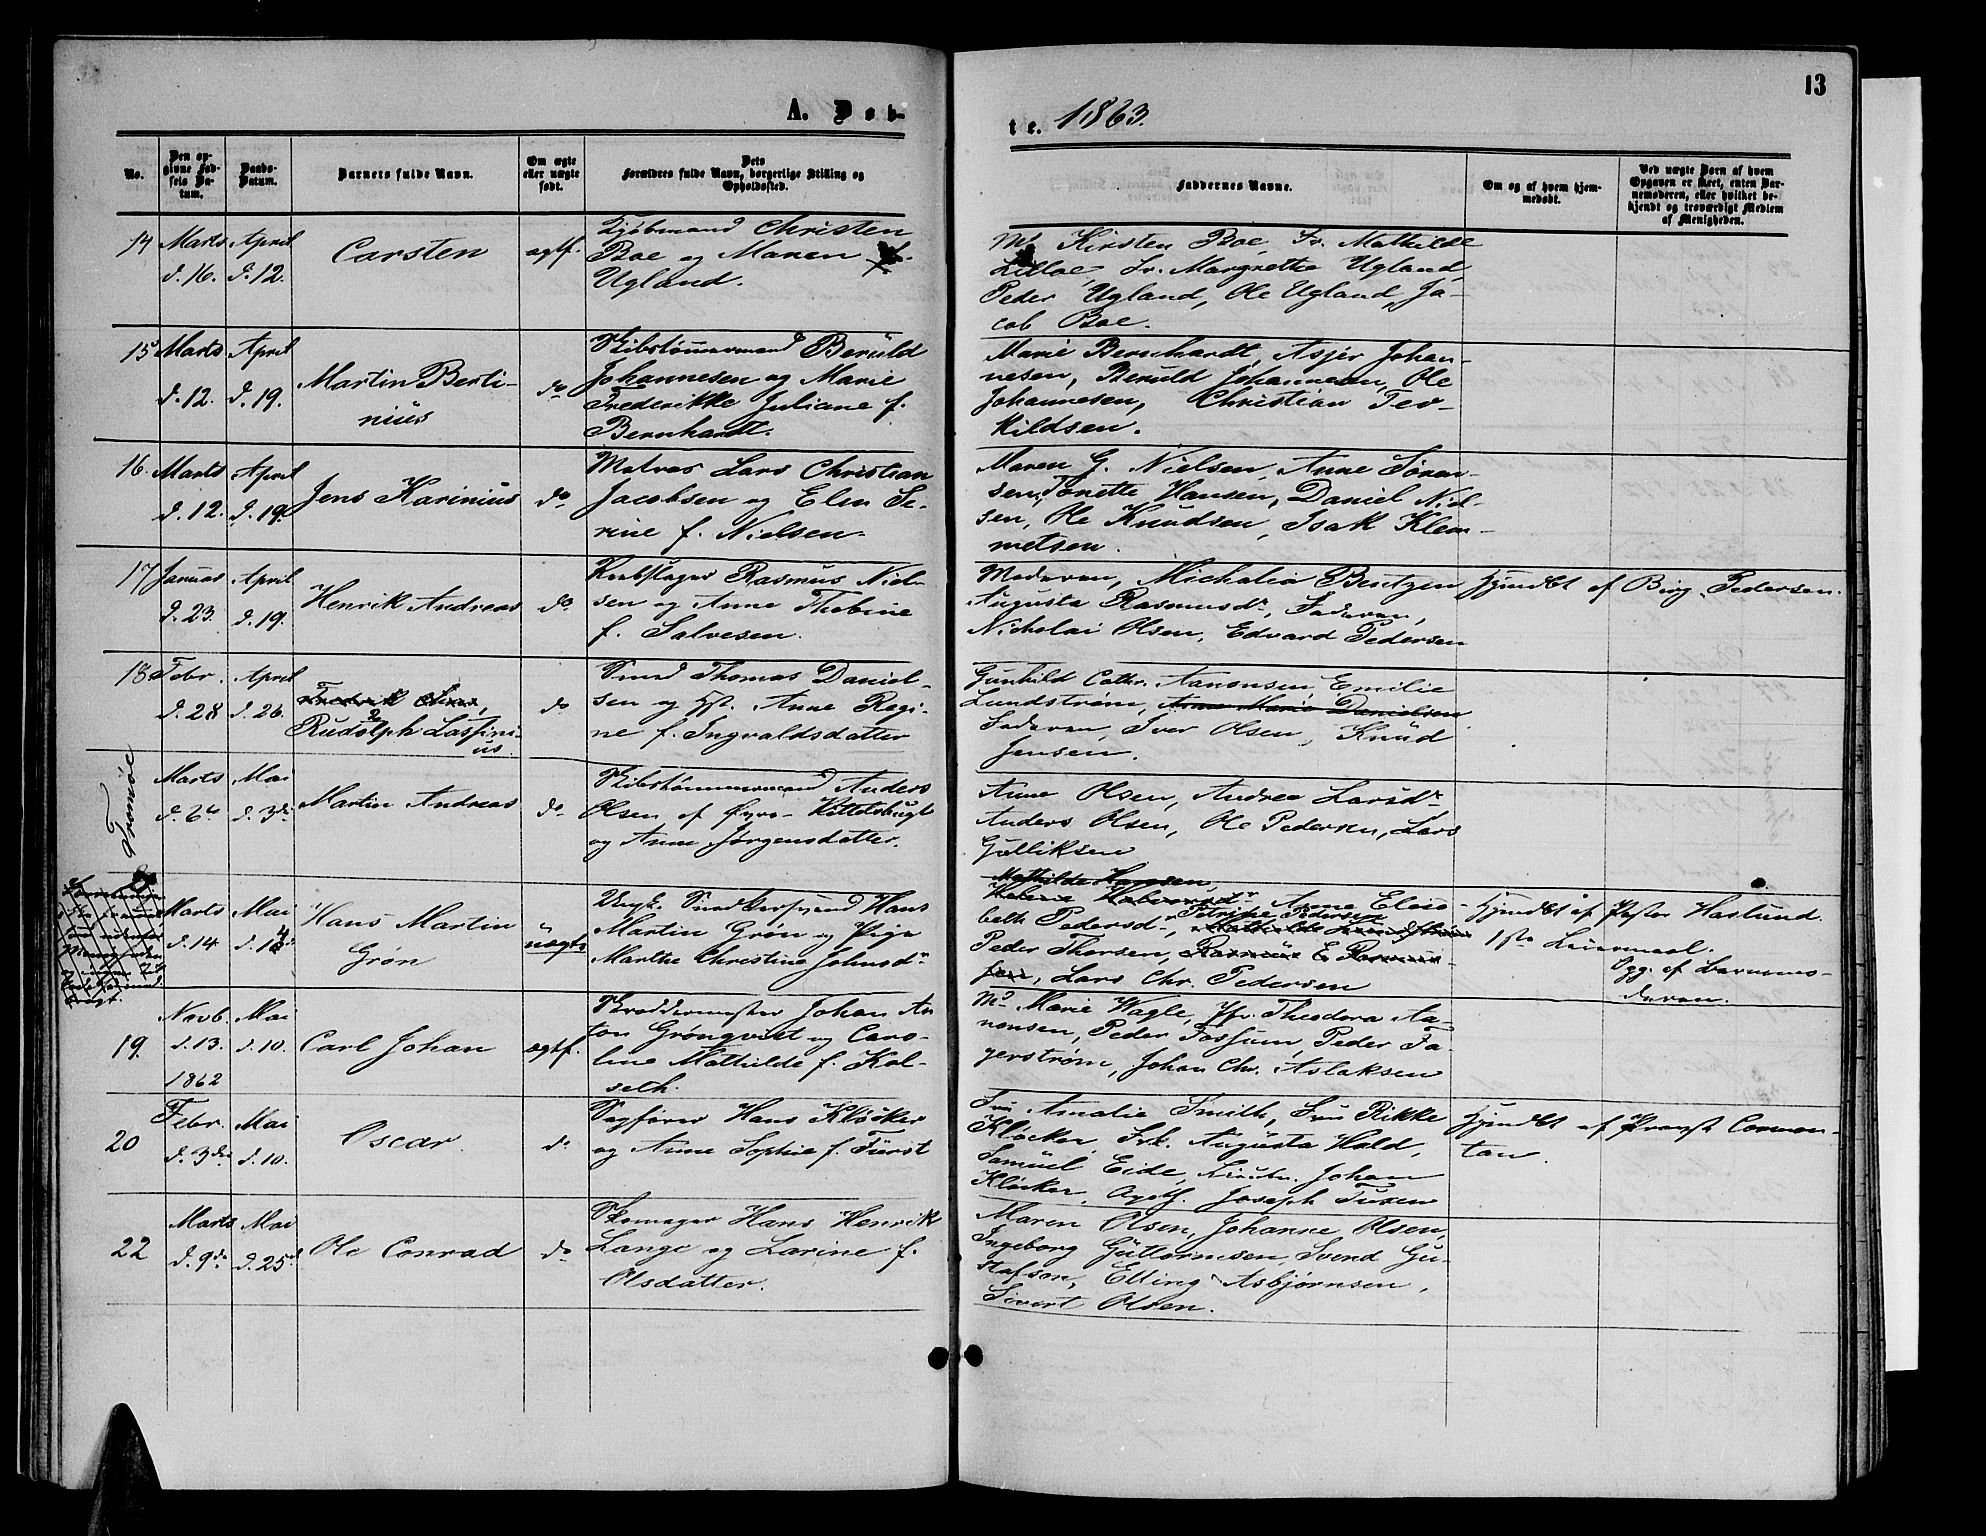 13
A. Døb-
te. 1863.
No.
Den opgivne Fødsels Datum.
Daabs-Datum.
Barnets fulde Navn.
Om ægte eller uægte født.
Dets Forældres fulde Navn, borgerlige Stilling og Opholdssted.
Faddernes Navne.
Om og af hvem hjemmedøbt.
Ved uægte Børn af hvem Opgaven er skeet, enten Barnemoderen, eller hvilket bekjendt og troværdigt Medlem af Menigheden.
14
Marts
d. 16.
April
d. 12.
Carsten
ægtf.
Kjøbmand Christen
Boe og Maren f.
Ugland.
Md Kirsten Boe, Fr. Mathilde
Lilloe, Fr. Margrethe Ugland,
Peder Ugland, Ole Ugland, Ja-
cob Boe.
15
Marts
d. 12.
April
d. 19.
Martin Berti-
nius
do
Skibstømmermand Beruld
Johannesen og Marie
Frederikke Juliane f.
Bernhardt.
Marie Bernhardt, Asjer Johan-
nesen, Beruld Johannesen, Ole
Johannesen, Christian Ter-
kildsen.
16.
Marts
d. 12.
April
d. 19.
Jens Karinius
do
Matros Lars Christian
Jacobsen og Elen Se-
rine f. Nielsen.
Maren G. Nielsen, Anne Søren-
sen, Tonette Hansen, Daniel Niel-
sen, Ole Knudsen, Isak Klem-
metsen.
17
Januar
d. 23.
April
d. 19.
Henrik Andreas
do
Reebslager Rasmus Niel-
sen og Anne Thobine
f. Salvesen.
Moderen, Michalia Bentzen
Augusta Rasmusdr, Faderen,
Nicholai Olsen, Edvard Pedersen
Hjemdbt af Birg. Pedersen.
18
Febr.
d. 28
April
d. 26.
Rudolph Lassini-
us.
do
Smed Thomas Daniel-
sen og Hst. Anne Regi-
ne f. Ingvaldsdatter
Gunhild Cathr. Aanonsen, Emilie
Lundstrøm, Anne Marie Danielsen
Faderen, Iver Olsen, Knud
Jensen.
Tromøe
Marts
d. 6te
Mai
d. 3die
Martin Andreas
do
Skibstømmermand Anders
Olsen af Øyro-Kittelsbugt
og Anne Jørgensdatter.
Anne Olsen, Andrea Larsdr
Anders Olsen, Ole Pedersen, Lars
Gulliksen
Marts
d. 14
Mai
Hans Martin
Grøn
uægte
Ungk. Snedkersvend Hans
Martin Grøn og Pige
Marthe Christine Johnsdr
Mathilde Hansen,
Anne Elisa-
beth Pedersd. Petrine Pedersen
Peder Thorsen,
Lars Chr. Pedersen
Hjemdbt af Pastor Haslund.
1ste Leiermaal.
Opg. af Barnemo-
deren.
19.
Novb.
d. 13.
1862
Mai
d. 10.
Carl Johan
ægtf.
Skreddermester Johan An
ton Grönqvist og Caro-
line Mathilde f. Kol-
seth.
Md Marie Wagle, Jfr. Theodora Aa-
nonsen, Peder Fossum, Peder Fa-
gerstrøm, Johan Chr. Aslaksen
20
Febr.
d. 3die
Mai
d. 10.
Oscar.
do
Sagfører Hans Kløcker
og Anne Sophie f. Fürst
Fru Amalie Smith, Fru Rikke
Kløcker, Frk. Augusta Hald,
Samuel Eide, Johan
Kløcker, Joseph Tuxen
Hjemdbt af Provst Conton-
tan.
22
Marts
d. 9de
Mai
d. 25de
Ole Conrad
do
Skomager Hans Henrik
Lange og Larine f.
Olsdatter.
Maren Olsen, Johanne Olsen,
Ingeborg Guttormsen, Svend Gu-
stafson, Elling Asbjørnsen,
Sivert Olsen.